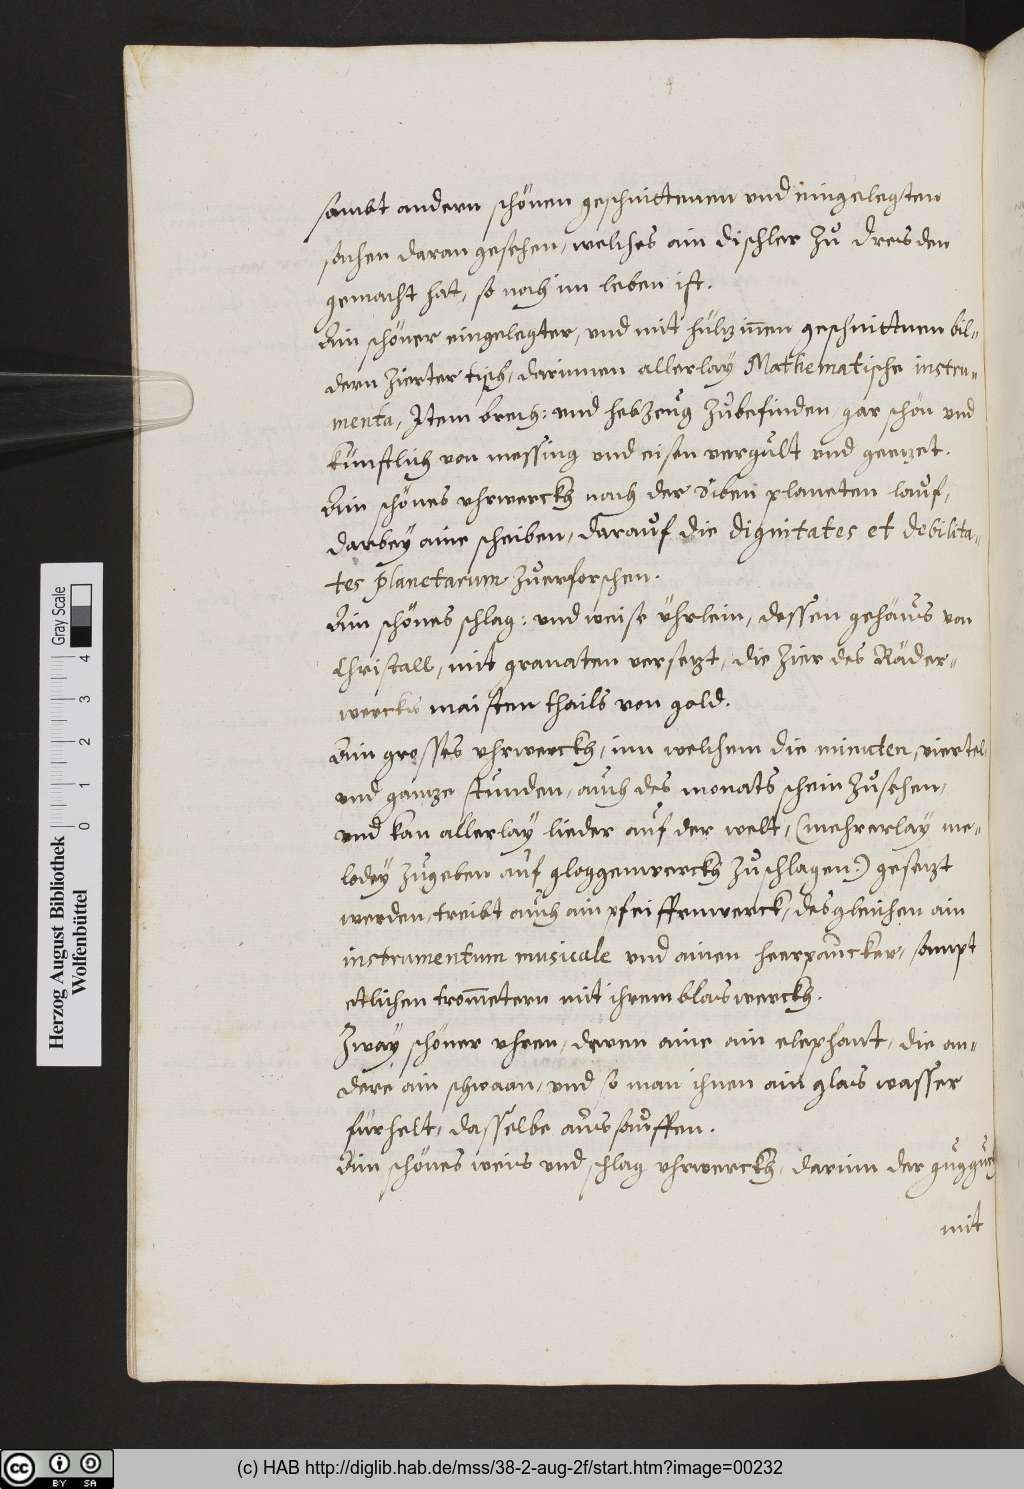 sambt andern schönen geschnittenen vnd eingelegten
sachen daran gesehen, welches ain dischler zů Dresden
gemacht hat, so noch im leben ist.
Ain schöner eingelegter, vnd mit hültzinnen geschnittnen bil-
dern zierter tisch, darinnen allerlay Mathematische instru-
menta, Item brech: vnd hebzeug zůbefinden, gar schön vnd
künstlich von messing vnd eisen vergült vnd geetzet.
Ain schönes vhrwerckh nach der siben planeten lauf,
darbey aine scheiben, darauf die dignitates et debilita-
tes planetarum zůerforschen.
Ain schönes schlag: vnd weise ührlein, dessen gehäus von
Christall, mit granaten versetzt, die zier des Räder-
wercks maisten thails von gold.
Ain grosses vhrwerckh, inn welchem die minuten, viertel
vnd gantze stunden, auch des monats schein zůsehen,
vnd kan allerlay lieder auf der welt, (mehrerlay me-
lodey zůgeben auf gloggenwerckh zůschlagen:) gesetzt
werden, treibt auch ain pfeiffenwerck, desgleichen ain
instrumentum musicale vnd ainen heerpaucker, sampt
etlichen trommetern mit ihrem blaswerckh.
Zway schöner vhren, deren aine ain elephant, die an-
dere ain schwaan, vnd so man ihnen ain glas wasser
fürhelt, dasselbe aussauffen.
Ain schönes weis vnd schlag vhrwerckh, darinn der guggůch
mit
Herzog August Bibliothek
Wolfenbüttel
0 1 2 3 4
Gray Scale
cc BY SA
(c) HAB http://diglib.hab.de/mss/38-2-aug-2f/start.htm?image=00232